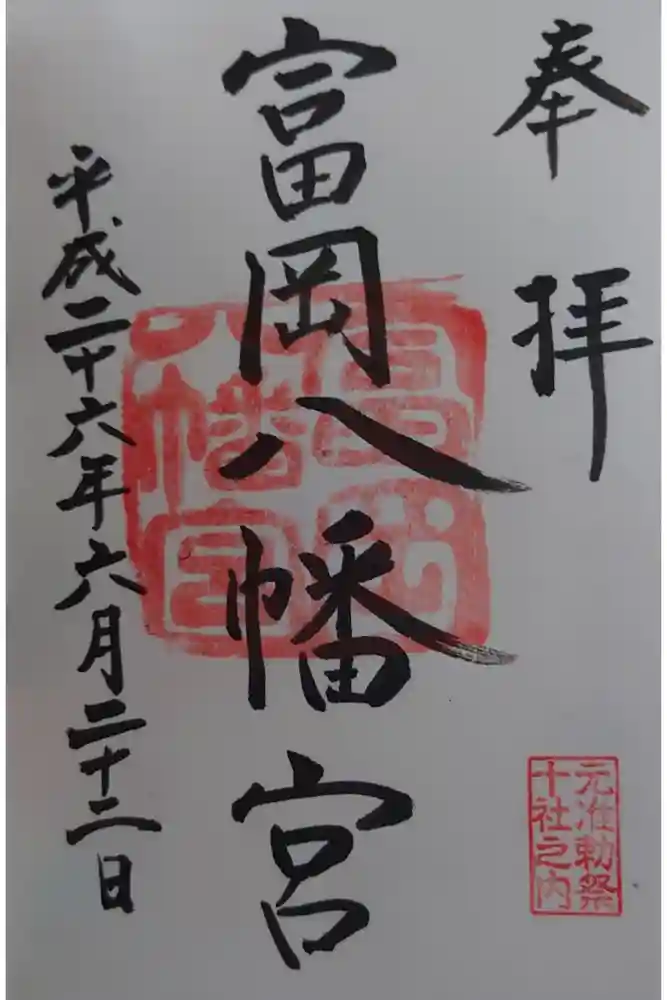 奉拝
富岡八幡宮
平成二十六年六月二十二日
元准勅祭
十社之内